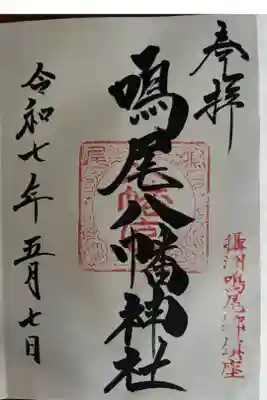 奉拝
鳴尾八幡神社
令和七年五月七日
摂州鳴尾